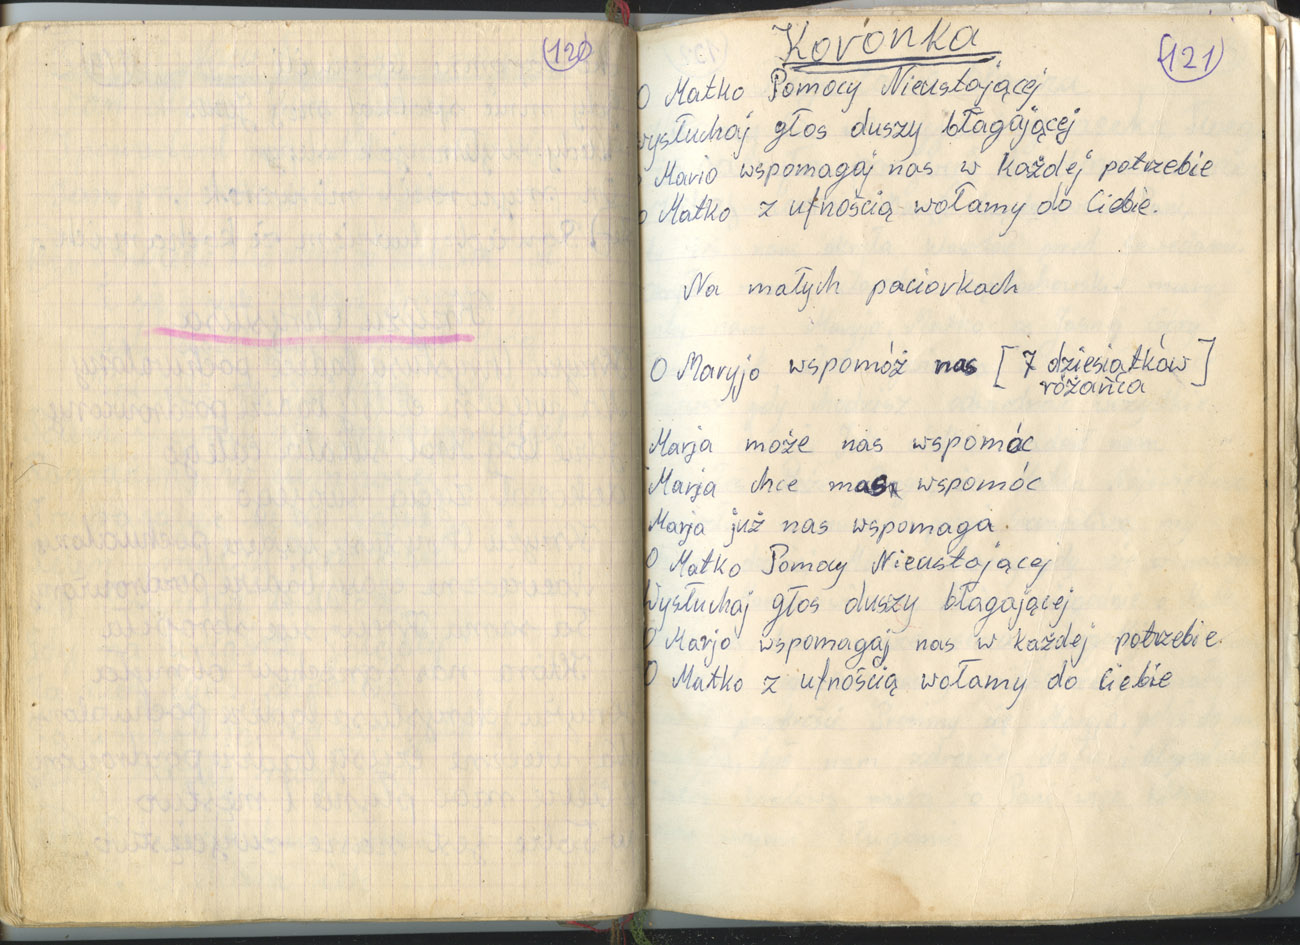 120
121
Koronka
O Matko Pomocy Nieustającej
wysłuchaj głos duszy błagającej
Mario wspomagaj nas w każdej potrzebie
o Matko z ufnością wołamy do Ciebie.
Na małych paciorkach
O Maryjo wspomóż nas [7 dziesiątków]
różańca
Marja może nas wspomóc
Marja chce nas wspomóc
Marja już nas wspomaga.
O Matko Pomocy Nieustającej
Wysłuchaj głos duszy błagającej
O Marjo wspomagaj nas w każdej potrzebie.
O Matko z ufnością wołamy do Ciebie